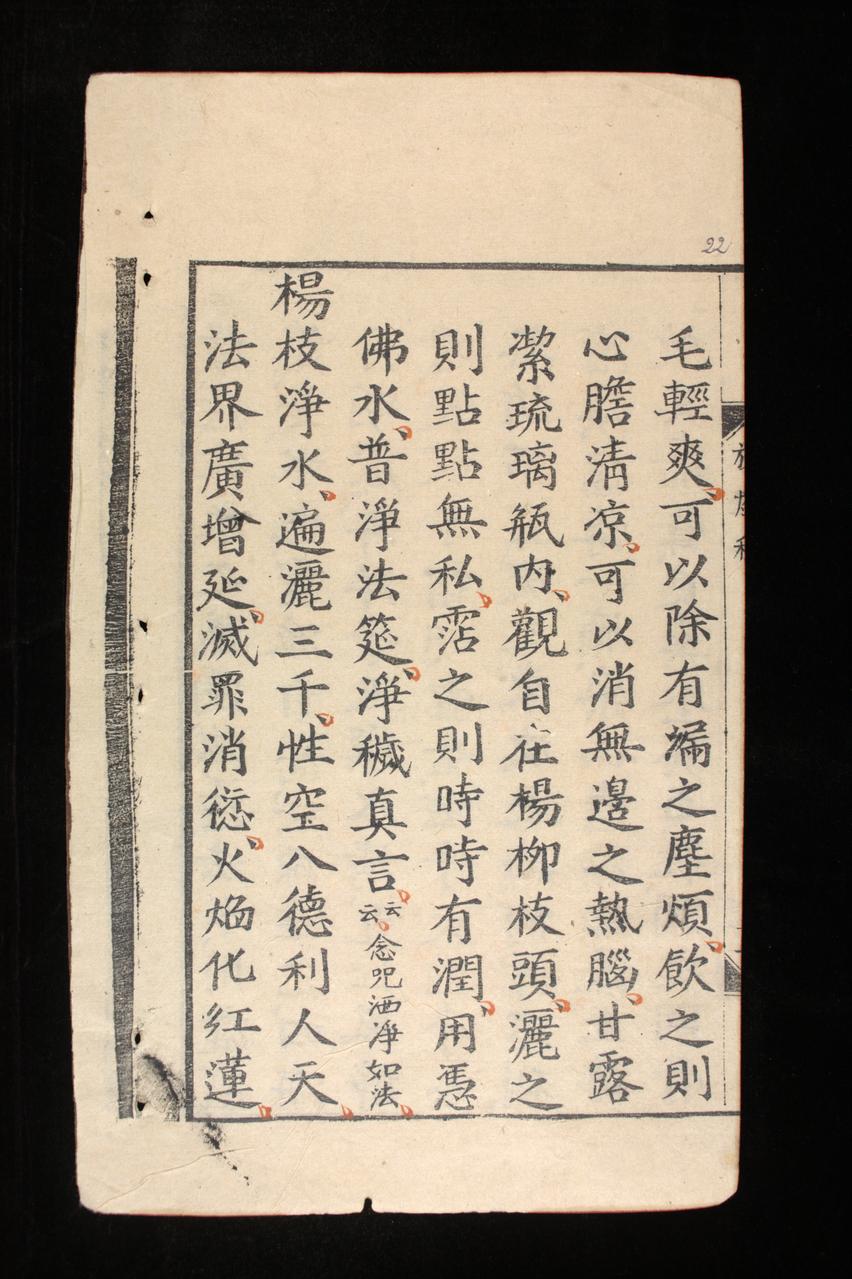 22
毛輕爽可以除有漏之塵煩飲之則
心膽清凉可以消無邊之熱腦甘露
潔琉璃瓶內觀自在楊柳枝頭灑之
則點點無私霑之則時時有潤用憑
佛水普淨法筵淨穢真言云云念咒洒净如法
楊枝淨水遍灑三千性空八德利人天
法界廣增延滅罪消愆火焰化红蓮